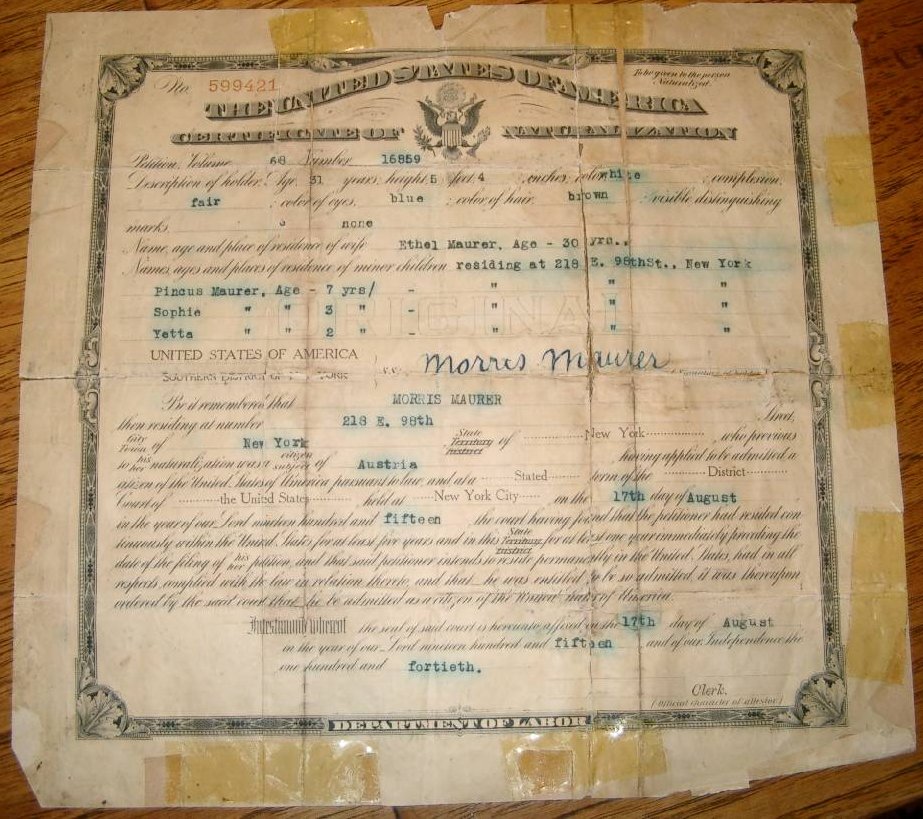 No. 599421
To be given to the person
Naturalized.
THE UNITED STATES OF AMERICA
CERTIFICATE OF NATURALIZATION
Petition, Volume 68 Number 16859
Description of holder: Age, 31 years; height, 5 feet, 4 inches; color, white; complexion,
fair; color of eyes, blue; color of hair, brown; visible distinguishing
marks, none
Name, age and place of residence of wife Ethel Maurer, Age - 30 yrs.,
Names, ages and places of residence of minor children residing at 218 E. 98thSt., New York
Pincus Maurer, Age - 7 yrs/ - " " "
Sophie " " 3 " - " " "
Yetta " " 2 " - " " "
ORIGINAL
UNITED STATES OF AMERICA
SOUTHERN DISTRICT OF NEW YORK
s.s. Morris Maurer
(Signature of holder)
Be it remembered that MORRIS MAURER
then residing at number 218 E. 98th Street,
City Town of New York State Territory District of New York, who previous
to his her naturalization was a citizen subject of Austria, having applied to be admitted a
citizen of the United States of America pursuant to law, and at a Stated term of the District
Court of the United States held at New York City on the 17th day of August
in the year of our Lord nineteen hundred and fifteen the court having found that the petitioner had resided con-
tinuously within the United States for at least five years and in this State Territory District for at least one year immediately preceding the
date of the filing of his her petition, and that said petitioner intends to reside permanently in the United States, had in all
respects complied with the law in relation thereto, and that he was entitled to be so admitted, it was thereupon
ordered by the said court that he be admitted as a citizen of the United States of America.
In testimony whereof the seal of said court is hereunto affixed on the 17th day of August
in the year of our Lord nineteen hundred and fifteen and of our Independence the
one hundred and fortieth.
Clerk.
(Official character of attestor)
DEPARTMENT OF LABOR